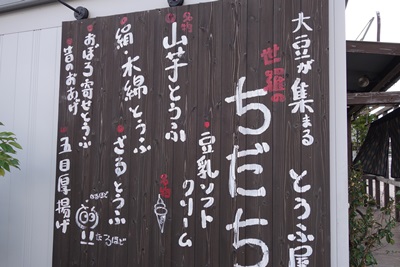 大豆が集まる とうふ屋
世羅の
ちだち
豆乳ソフト
クリーム
名物
ざるとうふ
絹・木綿とうふ
名物
山芋とうふ
おぼろ寄せとうふ
昔のおあげ
五目厚揚げ
なるほど
なるほど